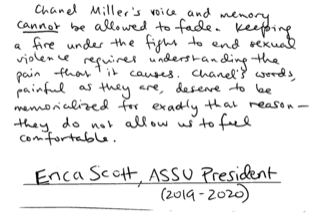 Chanel Miller's voice and memory
cannot be allowed to fade. Keeping
a fire under the fight to end sexual
violence requires understanding the
pain that it causes. Chanel's words,
painful as they are, deserve to be
memorialized for exactly that reason—
they do not allow us to feel
comfortable.
Erica Scott, ASSU President
(2019-2020)